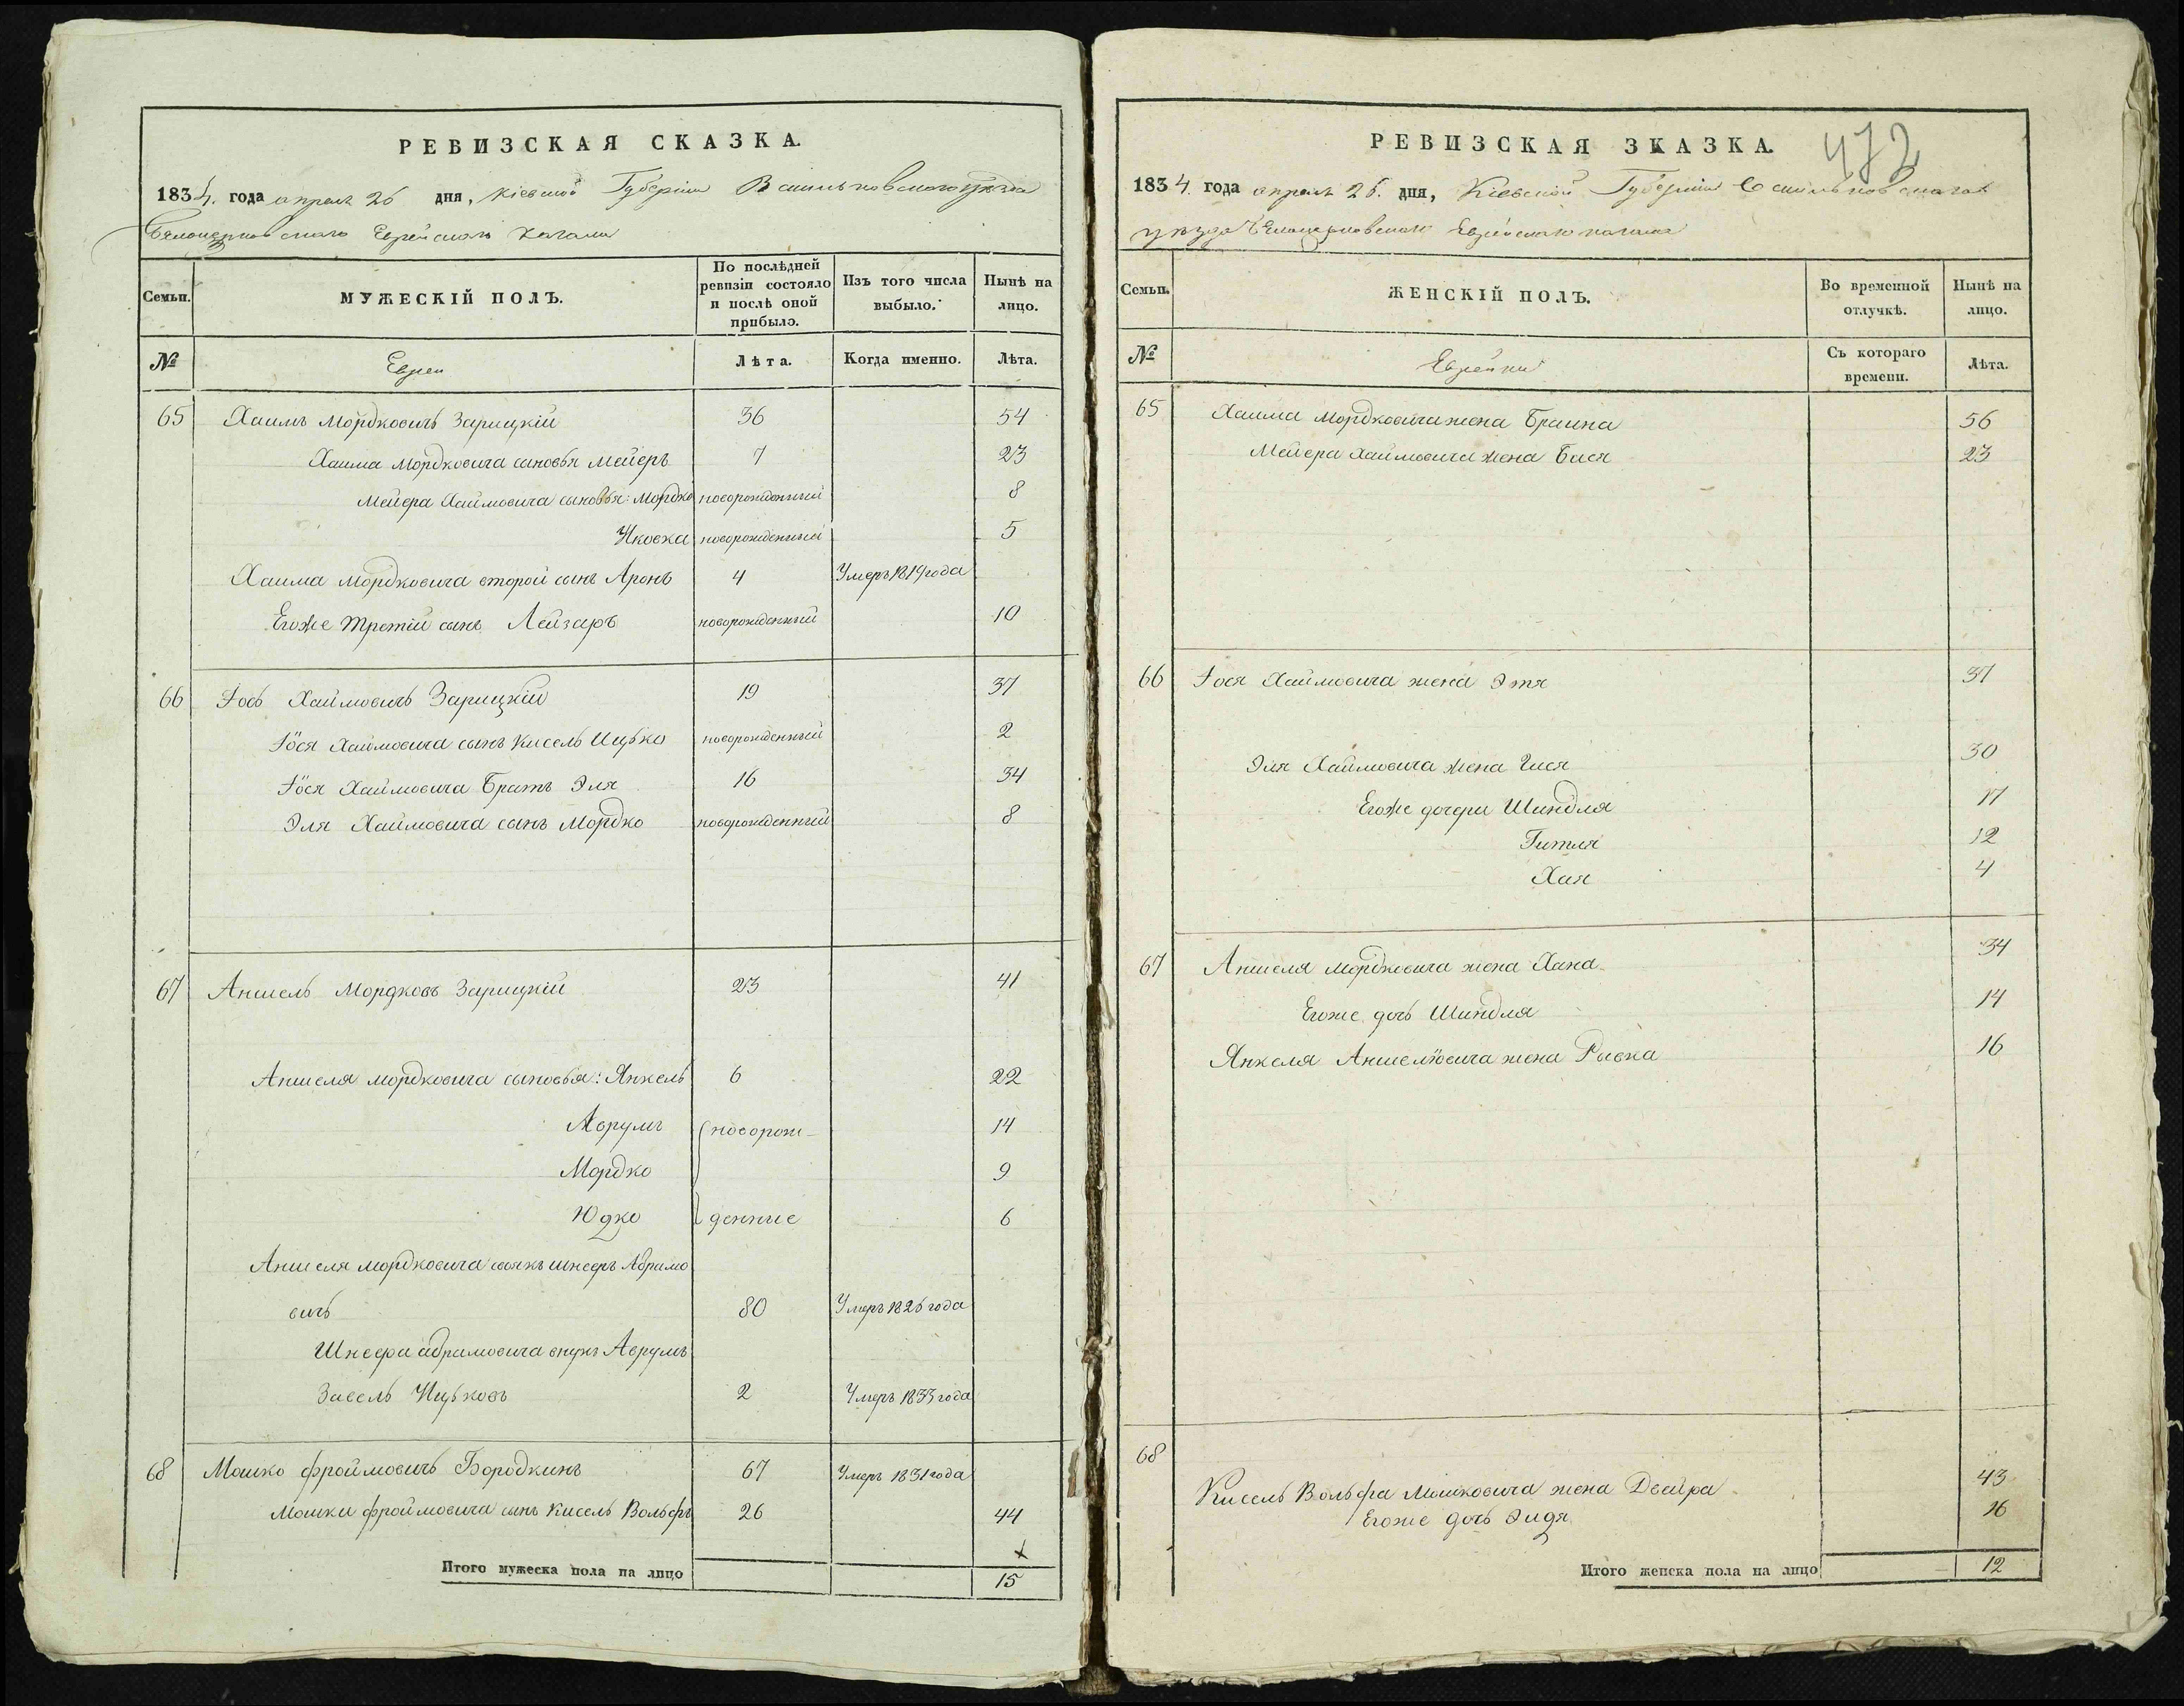 РЕВИЗСКАЯ СКАЗКА.
1834. года апреля 26 дня, Кіевской Губерніи Васильковскаго уѣзда
Бѣлоцерковскаго Еврейскаго Кагала
Семьи.
МУЖЕСКІЙ ПОЛЪ.
По послѣдней ревизіи состояло и послѣ оной прибыло.
Изъ того числа выбыло.
Нынѣ на лицо.
№
Евреи
Лѣта.
Когда именно.
Лѣта.
65 Хаимъ Мордковичъ Зарицкій 36 54
Хаима Мордковича сыновья Мейеръ 7 23
Мейера Хаймовича сыновья: Мордко новорожденный 8
Ицковка новорожденный 5
Хаима Мордковича второй сынъ Аронъ 4 Умеръ 1819 года
Егоже Третій сынъ Лейзаръ новорожденный 10
66 Іось Хаймовичъ Зарицкій 19 37
Іося Хаймовича сынъ Кисель Ицько новорожденный 2
Іося Хаймовича Братъ Эля 16 34
Эля Хаймовича сынъ Мордко новорожденный 8
67 Аншель Мордковъ Зарицкій 23 41
Аншеля Мордковича сыновья: Янкель 6 22
Аврумъ новорож- 14
Мордко 9
Юдко денные 6
Аншеля Мордковича Шнееръ Абрамо
вичъ 80 Умеръ 1826 года
Шнеера абрамовича внукъ Аврумъ
Завель Ицьковъ 2 Умеръ 1833 года
68 Мошко фроймовичъ Бородкинъ 67 Умеръ 1831 года
Мошки фроймовича сынъ Кисель Вольфъ 26 44
Итого мужеска пола на лицо 15
РЕВИЗСКАЯ ЗКАЗКА.
472
1834. года апреля 26. дня, Кіевской Губерніи Васильковскаго
уѣзда Бѣлоцерковскаго Еврейскаго кагала
Семьи.
ЖЕНСКІЙ ПОЛЪ.
Во временной отлучкѣ.
Нынѣ на лицо.
№
Еврейки
Съ котораго времени.
Лѣта.
65 Хаима Мордковича жена Браина 56
Мейера Хаймовича жена Бася 23
66 Іося Хаймовича жена Этя 37
Эля Хаймовича жена Гися 30
Егоже дочери Шиндля 17
Гитля 12
Хая 4
67 Аншеля Мордковича жена Хана 34
Егоже дочь Шиндля 14
Янкеля Аншелювича жена Рывка 16
68
Кисель Вольфа Мошковича жена Двайра 43
Егоже дочь Эидя 16
Итого женска пола на лицо 12